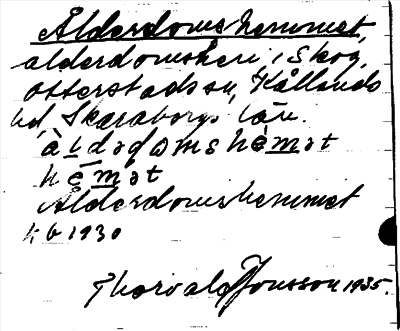 Ålderdomshemmet,
ålderdomshem i Skog,
Otterstads sn, Kållands
hd, Skaraborgs län.
àldədomshèmət
hēmət
Ålderdomshemmet
kb 1930
Thorvald Jonsson 1935.